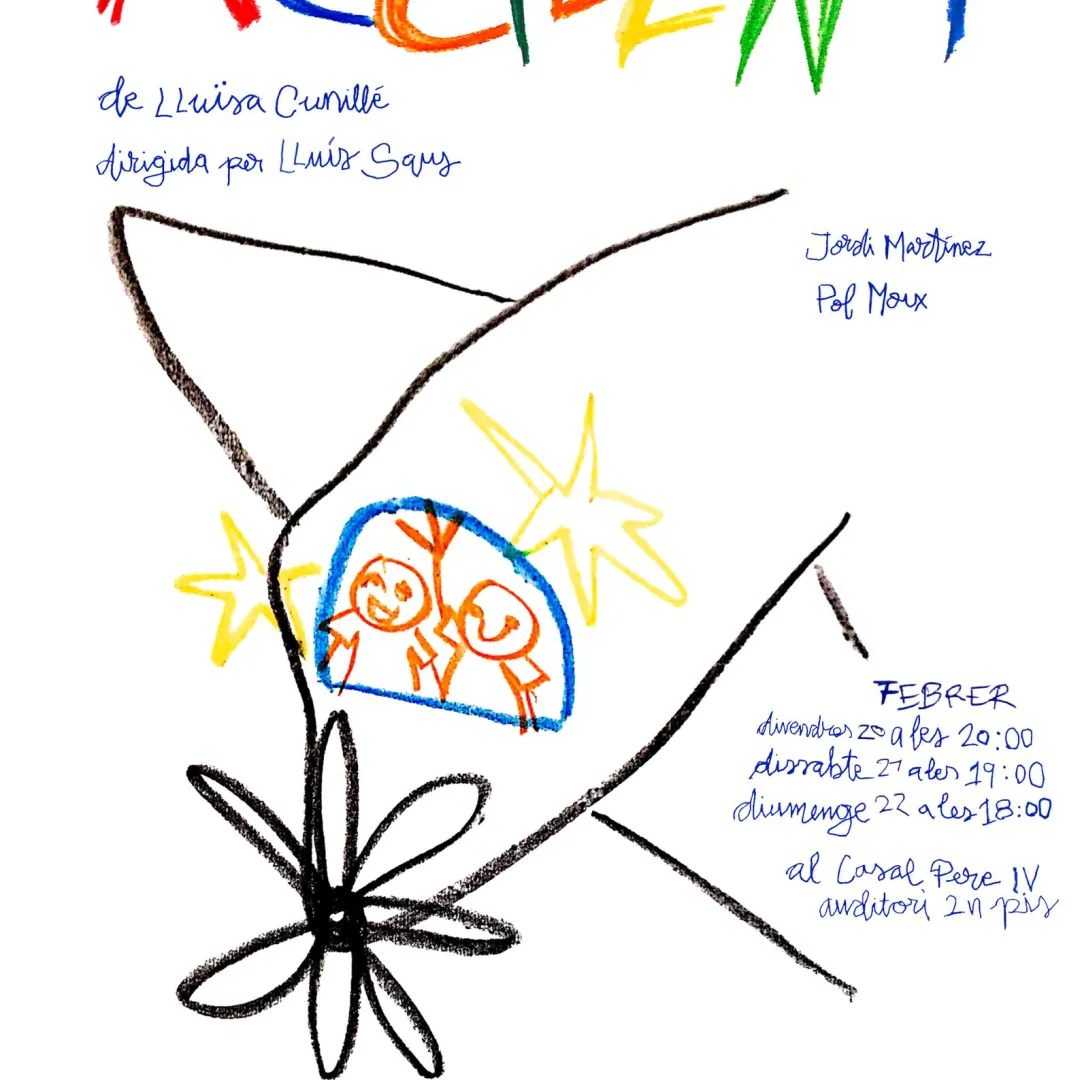 ACCIDENT
de Lluïsa Cunillé
dirigida per Lluís Saus
Jordi Martínez
Pol Moux
FEBRER
divendres 20 a les 20:00
dissabte 21 a les 19:00
diumenge 22 a les 18:00
al Casal Pere IV
auditori 2n pis